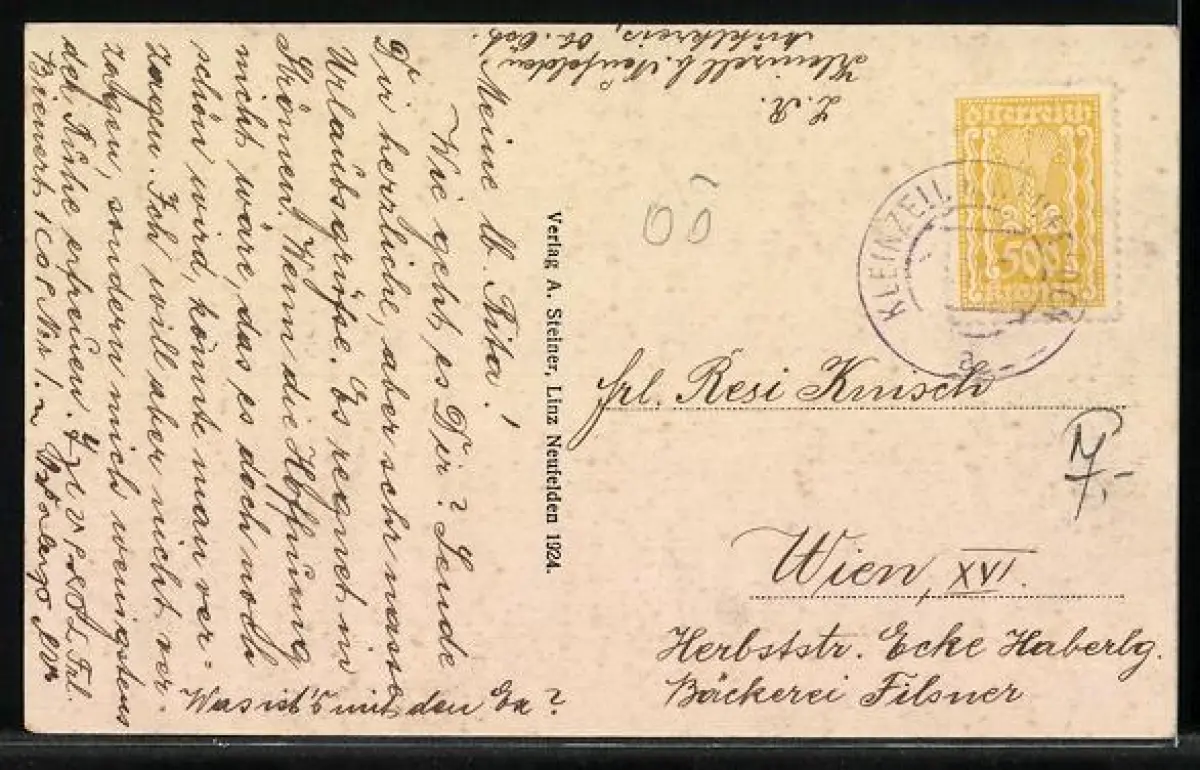 Meine lb. Rita!
Wie geht es Dir? Sende
Dir herrliche, aber sehr nasse
Urlaubsgrüße. Es regnet in
Strömen. Wenn die Hoffnung
nicht wäre, das es doch noch
schön wird, könnte man ver=
zagen. Ich will aber nicht ver-
zagen, sondern mich wenigstens
der Ruhe erfreuen.
Was ist's mit den
Verlag A. Steiner, Linz Neufelden 1924.
L. R.
Kleinzell b. Neufelden
Mühlkreis, Ob. Öst.
Österreich
500
Kronen
KLEINZELL
a
frl. Resi Knisch
Wien, XVI.
Herbststr. Ecke Haberlg.
Bäckerei Filsner
7,-